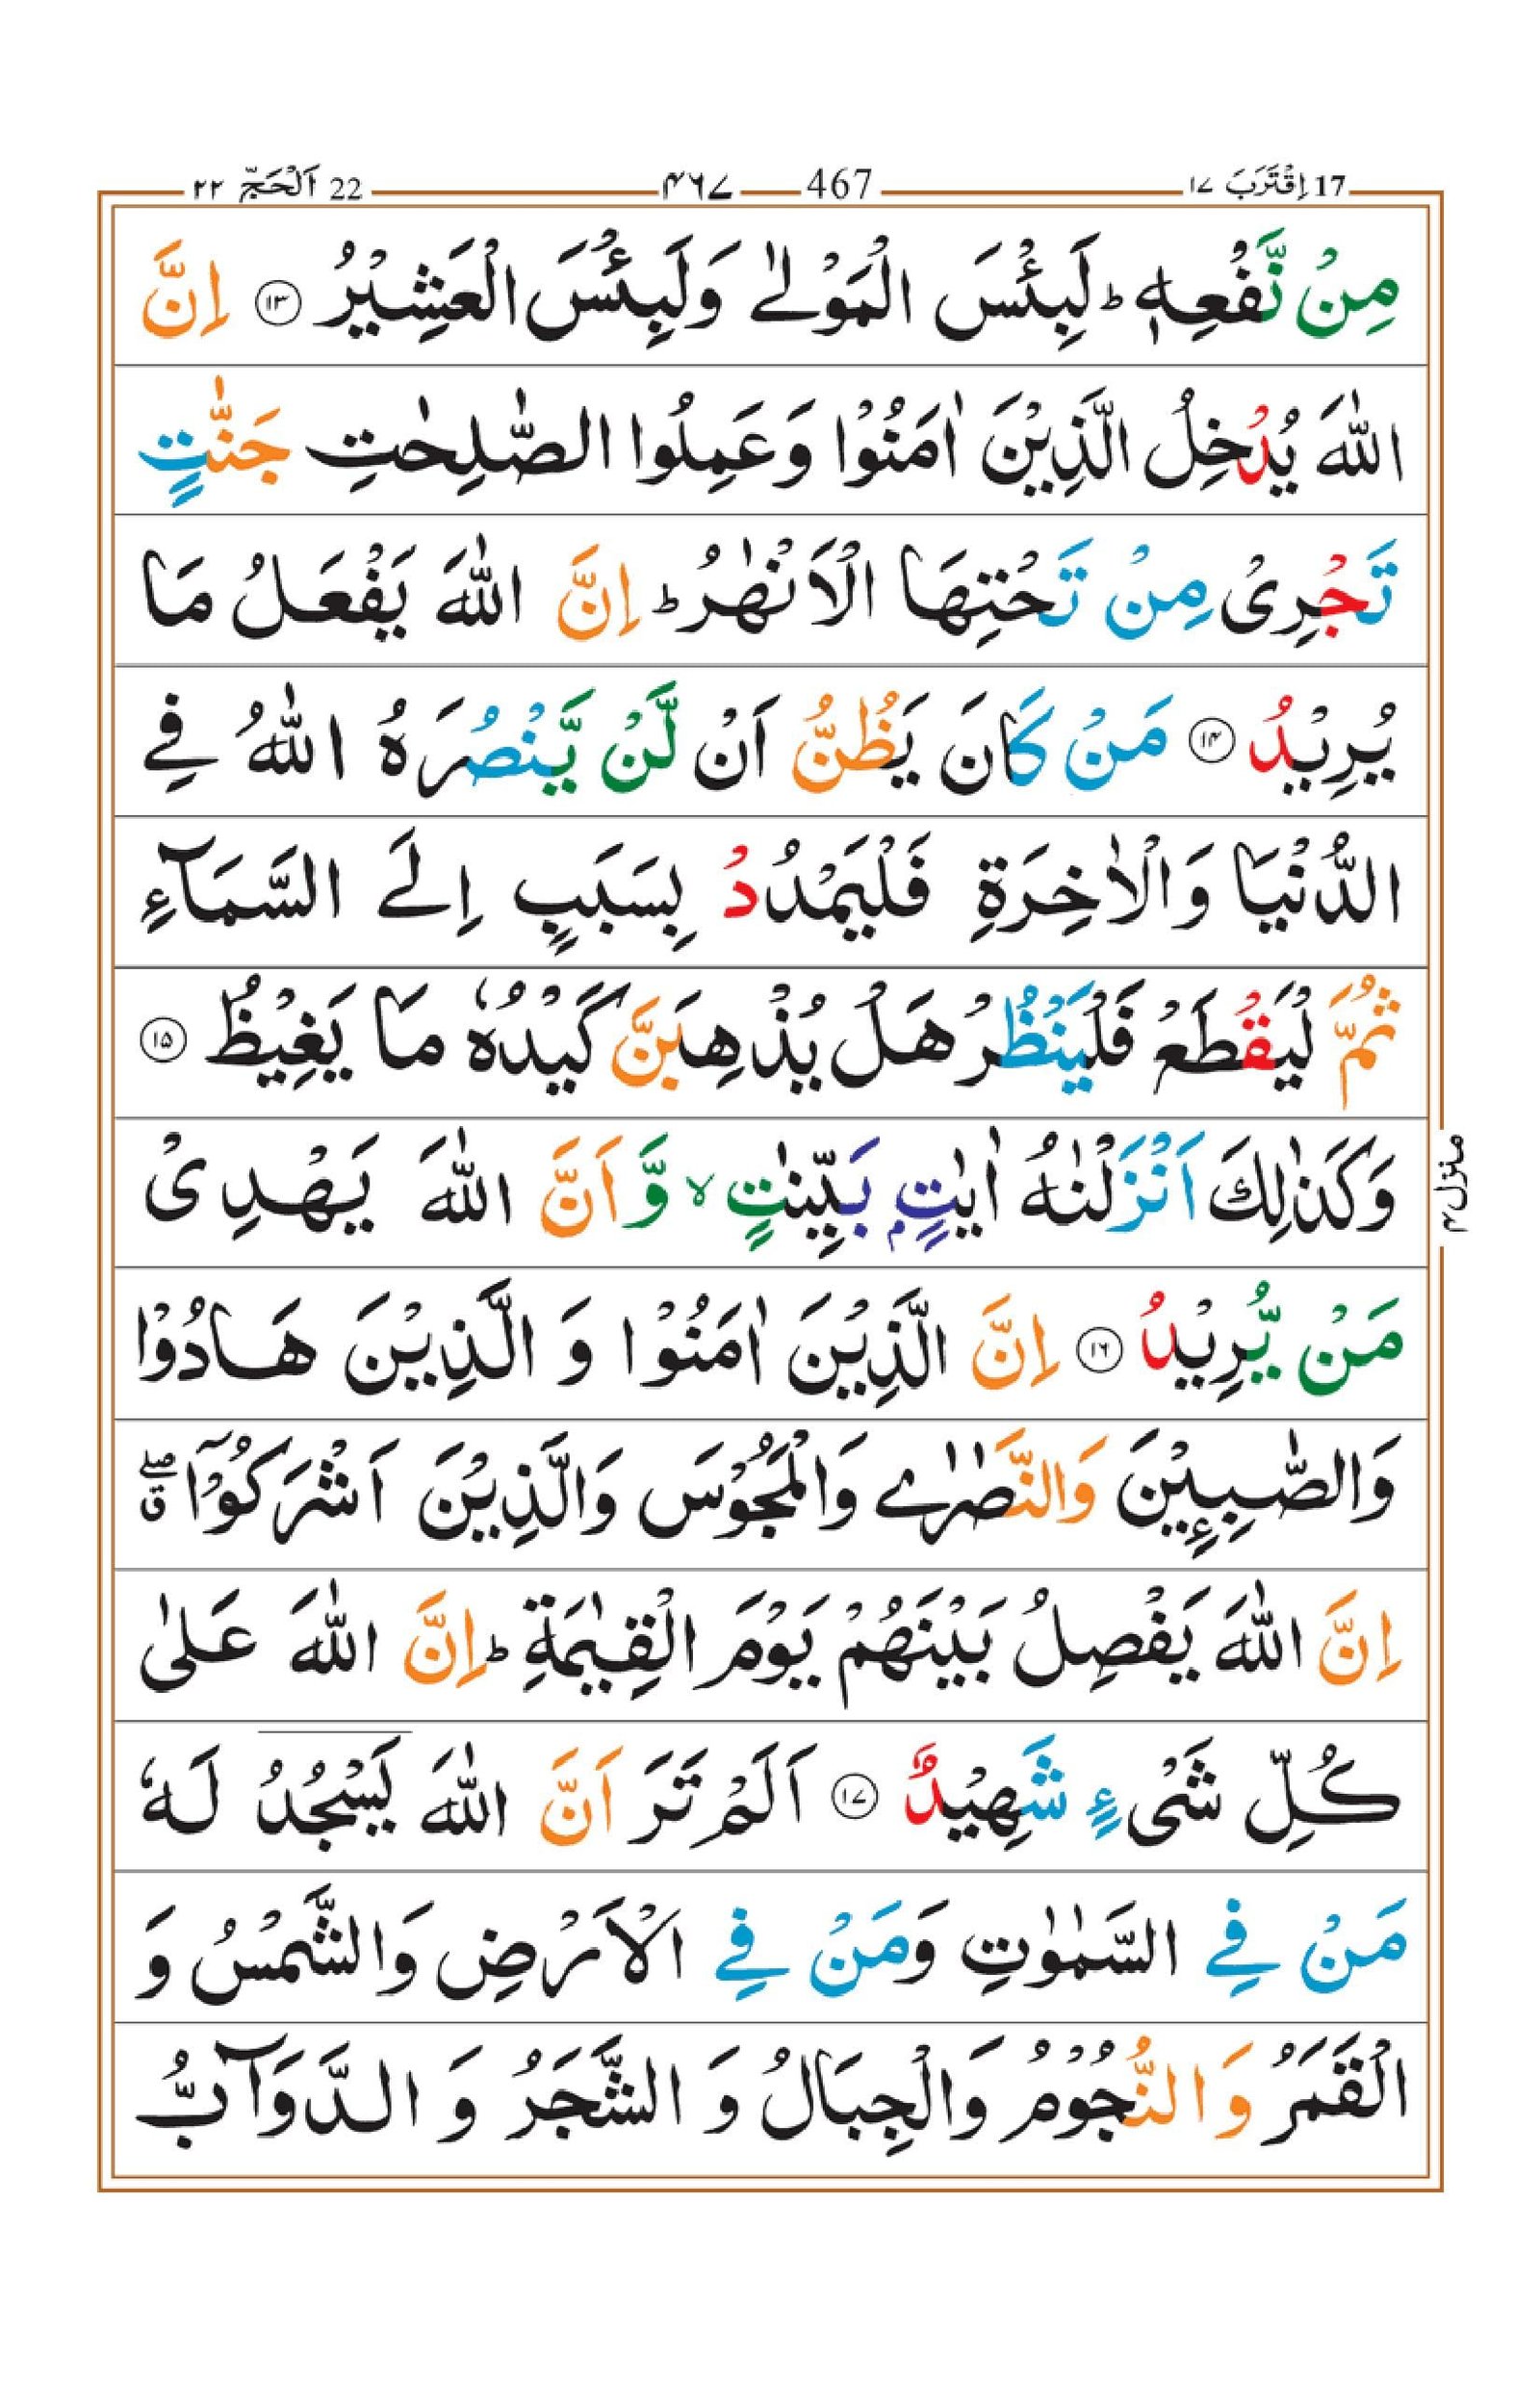 17 اِقْتَرَبَ ١٧ 467 ۴۶۷ 22 اَلْحَجّ ٢٢
مِنْ نَّفْعِهٖ ؕ لَبِئْسَ الْمَوْلٰى وَلَبِئْسَ الْعَشِيْرُ ﴿۱۳﴾ اِنَّ
اللّٰهَ يُدْخِلُ الَّذِيْنَ اٰمَنُوْا وَعَمِلُوا الصّٰلِحٰتِ جَنّٰتٍ
تَجْرِىْ مِنْ تَحْتِهَا الْاَنْهٰرُ ؕ اِنَّ اللّٰهَ يَفْعَلُ مَا
يُرِيْدُ ﴿۱۴﴾ مَنْ كَانَ يَظُنُّ اَنْ لَّنْ يَّنْصُرَهُ اللّٰهُ فِى
الدُّنْيَا وَالْاٰخِرَةِ فَلْيَمْدُدْ بِسَبَبٍ اِلَى السَّمَآءِ
ثُمَّ لْيَقْطَعْ فَلْيَنْظُرْ هَلْ يُذْهِبَنَّ كَيْدُهٗ مَا يَغِيْظُ ﴿۱۵﴾
وَكَذٰلِكَ اَنْزَلْنٰهُ اٰيٰتٍۢ بَيِّنٰتٍ ۙ وَّاَنَّ اللّٰهَ يَهْدِىْ
مَنْ يُّرِيْدُ ﴿۱۶﴾ اِنَّ الَّذِيْنَ اٰمَنُوْا وَ الَّذِيْنَ هَادُوْا
وَالصّٰبِـِٕيْنَ وَالنَّصٰرٰى وَالْمَجُوْسَ وَالَّذِيْنَ اَشْرَكُوْۤا ۖ ق
اِنَّ اللّٰهَ يَفْصِلُ بَيْنَهُمْ يَوْمَ الْقِيٰمَةِ ؕ اِنَّ اللّٰهَ عَلٰى
كُلِّ شَىْءٍ شَهِيْدٌ ﴿۱۷﴾ اَلَمْ تَرَ اَنَّ اللّٰهَ يَسْجُدُ لَهٗ
مَنْ فِى السَّمٰوٰتِ وَمَنْ فِى الْاَرْضِ وَالشَّمْسُ وَ
الْقَمَرُ وَ النُّجُوْمُ وَالْجِبَالُ وَ الشَّجَرُ وَ الدَّوَآبُّ
منزل ۴